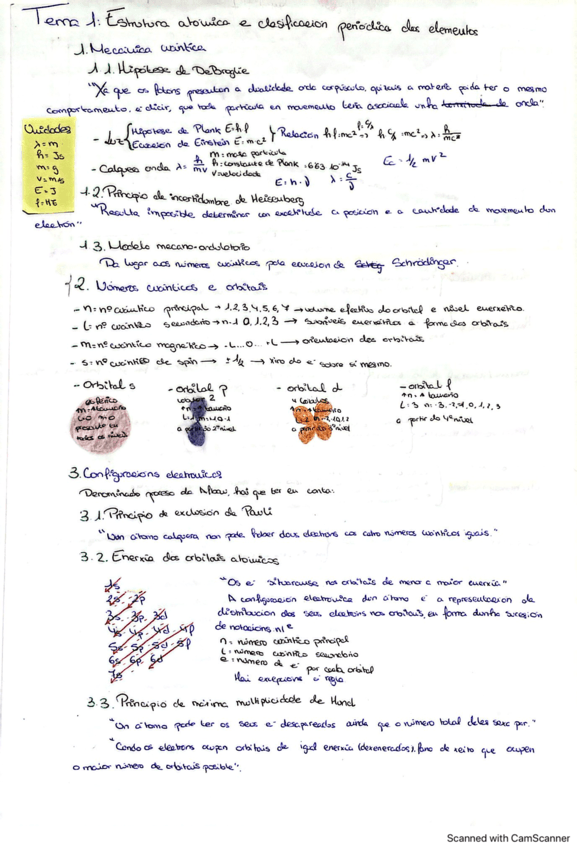 Tema 1: Estrutura atómica e clasificación periódica dos elementos
1. Mecánica cuántica
1.1. Hipótese de DeBroglie
"Xa que os fotóns presentan a dualidade onda corpúsculo, quizais a materia poida ter o mesmo
comportamento, é dicir, que toda partícula en movemento leva asociada unha de onda"
Unidades
λ = m
h = Js
m = g
v = m/s
E = J
f = HZ
- Luz { Hipótese de Plank E=h·f
Ecuación de Einstein E=mc²
} Relación h·f=mc²
- Calquera onda λ = h/mv
m: masa partícula
h: constante de Plank
v: velocidade
Ec = 1/2 mv²
1.2. Principio de incertidumbre de Heisenberg
"Resulta imposible determinar con exactitude a posición e a cantidade de movemento dun
electrón"
1.3. Modelo mecano-ondulatorio
Da lugar aos números cuánticos pola ecuación de Schrödinger.
2. Números cuánticos e orbitais
- n = nº cuántico principal → 1,2,3,4,5,6,7 → volume efectivo do orbital e nivel enerxético.
- L = nº cuántico secundario → n-1 0,1,2,3 → subniveis enerxéticos e forma dos orbitais
- m = nº cuántico magnético → -L...0...+L → orientación dos orbitais
- s = nº cuántico de spin → ± 1/2 → xiro do e⁻ sobre si mesmo.
- Orbital s
esférico
- orbital p
a partir do 2º nivel
- orbital d
4 lóbulos
a partir do 3º nivel
- orbital f
↑n = ↑ tamaño
L = 3 m: -3,-2,-1,0,1,2,3
a partir do 4º nivel
3. Configuracións electrónicas
Denominado proceso de Aufbau, hai que ter en conta:
3.1. Principio de exclusión de Pauli
"Nun átomo calquera non pode haber dous electróns cos catro números cuánticos iguais."
3.2. Enerxía dos orbitais atómicos
1s
2s 2p
3s 3p 3d
4s 4p 4d 4f
5s 5p 5d 5f
6s 6p 6d
7s
"Os e⁻ sitúranse nos orbitais de menor a maior enerxía"
A configuración electrónica dun átomo é a representación da
distribución dos seus electróns nos orbitais, en forma dunha sucesión
de notacións nl^e
n = número cuántico principal
L = número cuántico secundario
e = número de e⁻ por cada orbital
Hai excepcións á regra
3.3. Principio de máxima multiplicidade de Hund
"Un átomo pode ter os seus e⁻ desapareados aínda que o número total deles sexa par."
"Cando os electróns ocupan orbitais de igual enerxía (dexenerados), fano de xeito que ocupen
o maior número de orbitais posible".
Scanned with CamScanner